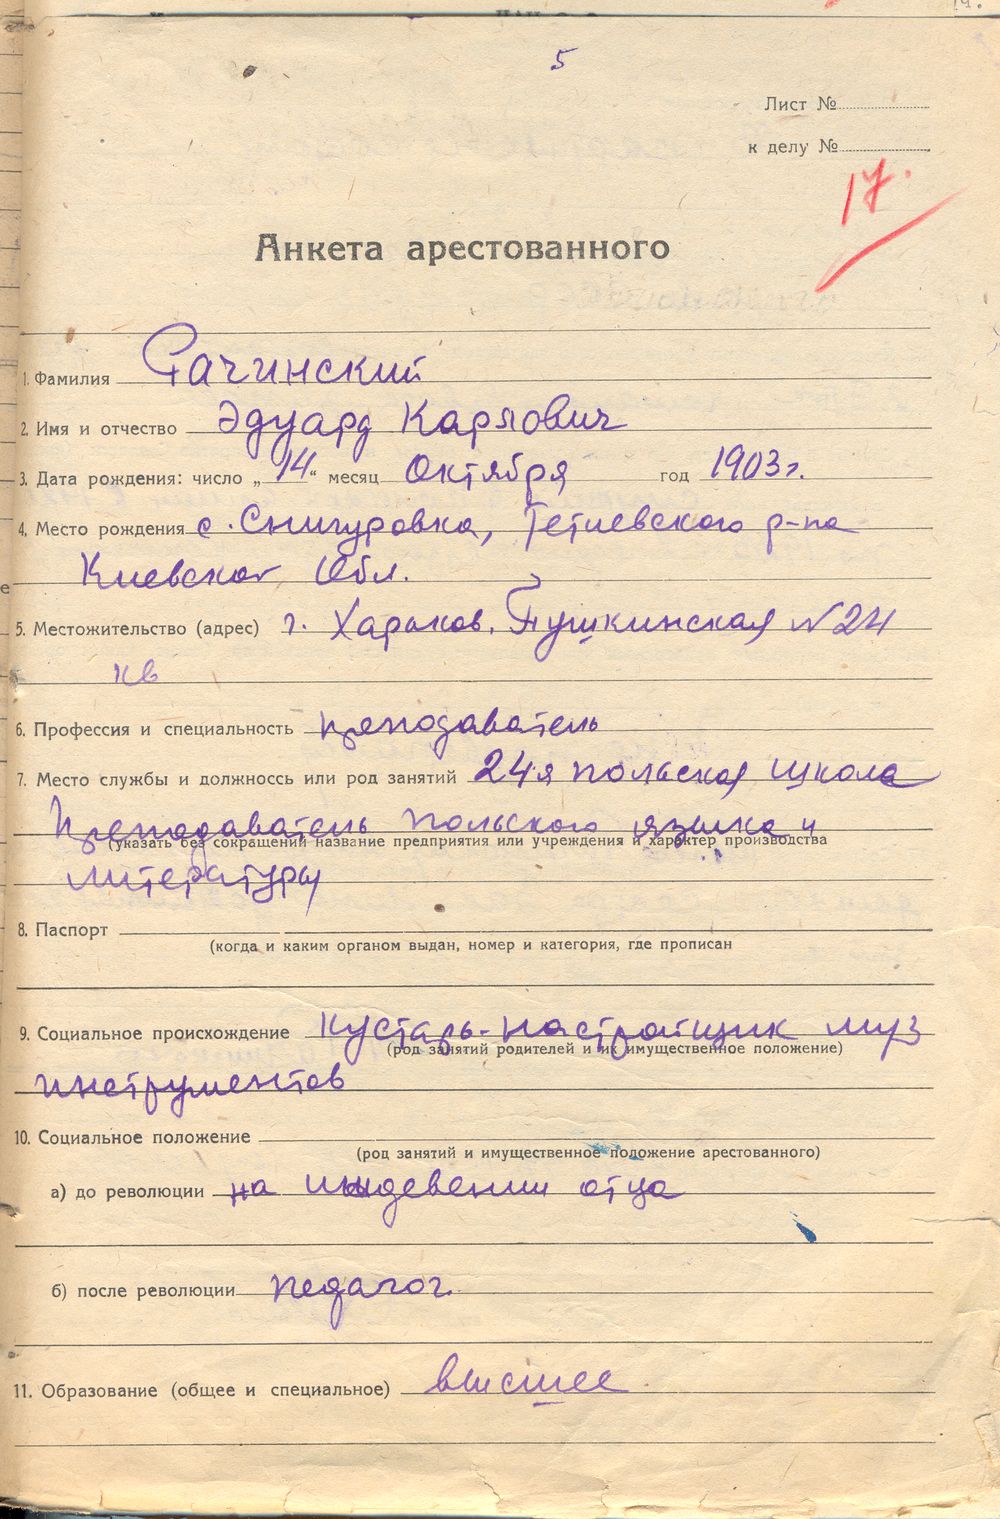 5
Лист №
к делу №
17.
Анкета арестованного
1. Фамилия Рачинский
2. Имя и отчество Эдуард Карлович
3. Дата рождения: число „14“ месяц Октября год 1903 г.
4. Место рождения с. Снигуровка, Тетиевского р-на
Киевской Обл.
5. Местожительство (адрес) г. Харьков, Пушкинская № 24
кв
6. Профессия и специальность преподаватель
7. Место службы и должноссь или род занятий 24я польская школа
Преподаватель польского языка и
(указать без сокращений название предприятия или учреждения и характер производства
литературы
8. Паспорт
(когда и каким органом выдан, номер и категория, где прописан
9. Социальное происхождение кустарь-настройщик муз
(род занятий родителей и их имущественное положение)
инструментов
10. Социальное положение
(род занятий и имущественное положение арестованного)
а) до революции на иждевении отца
б) после революции педагог.
11. Образование (общее и специальное) высшее